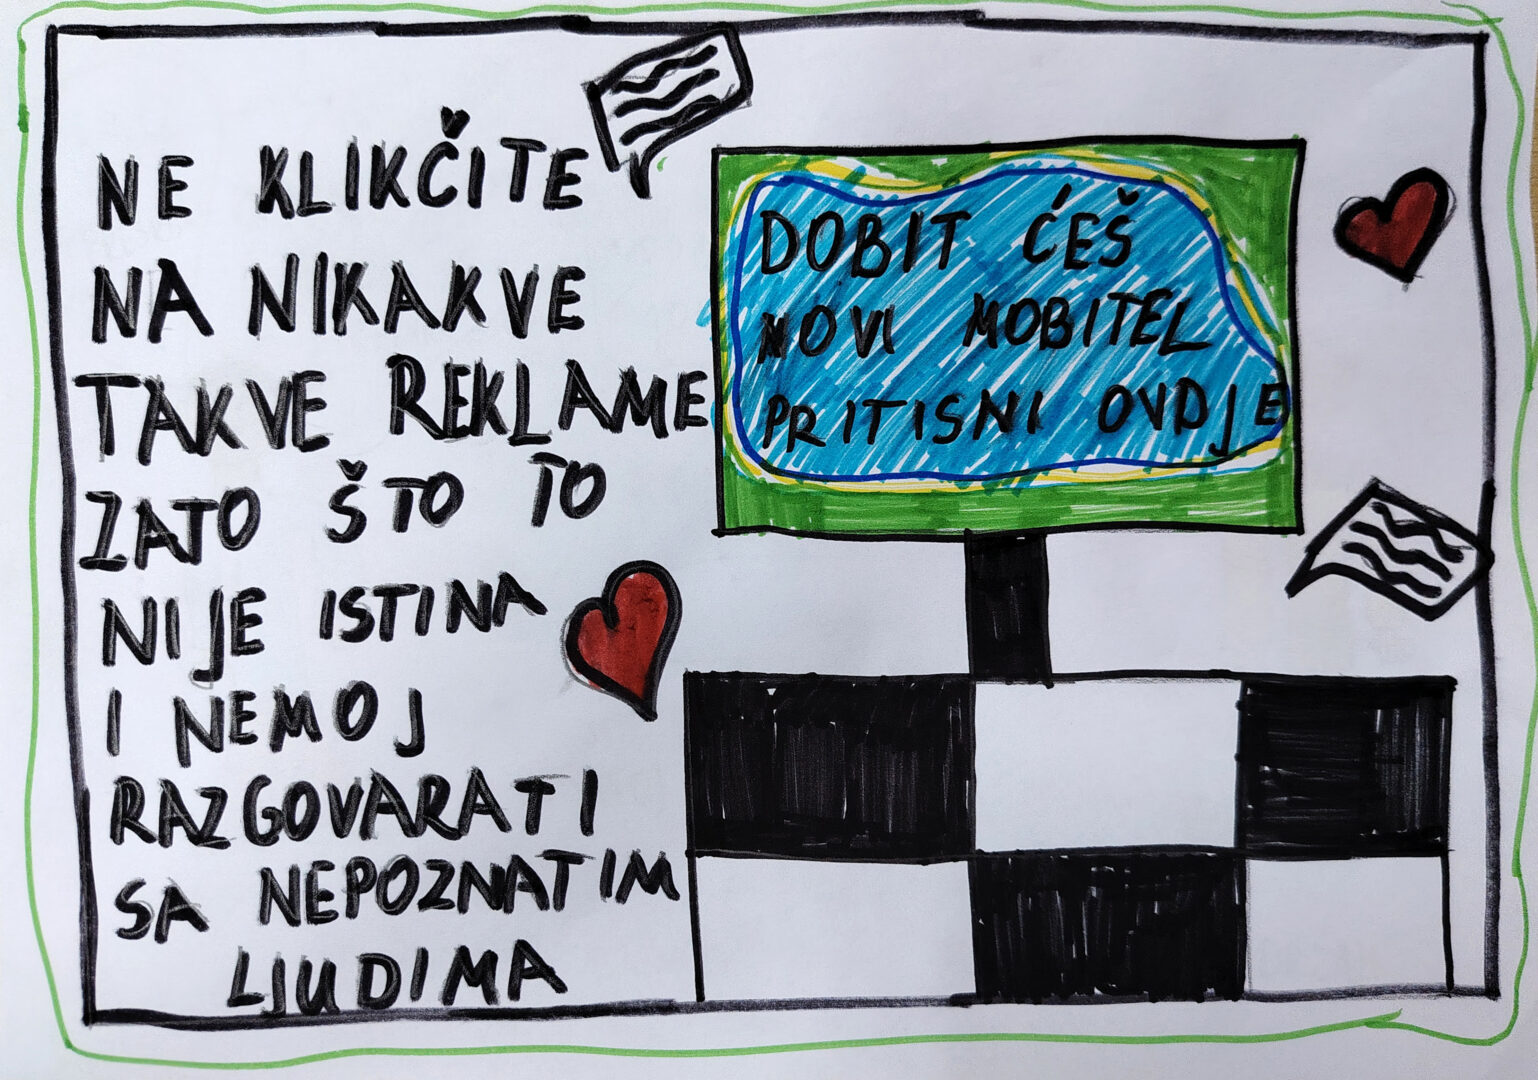 NE KLIKČITE
NA NIKAKVE
TAKVE REKLAME
ZATO ŠTO TO
NIJE ISTINA
I NEMOJ
RAZGOVARATI
SA NEPOZNATIM
LJUDIMA
DOBIT ĆEŠ
NOVI MOBITEL
PRITISNI OVDJE